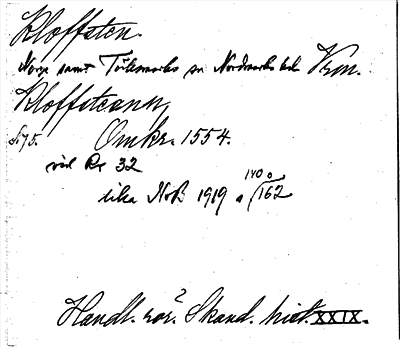 Kloffsten.
Norge samt Töksmarks sn Nordmarks hd Vrm.
Kloffsteann,
S. 75. Omkr. 1554.
vid Rr 32
lika NoB 1919 s 140 o 162
Handl. rör. Skand. hist. XXIX.